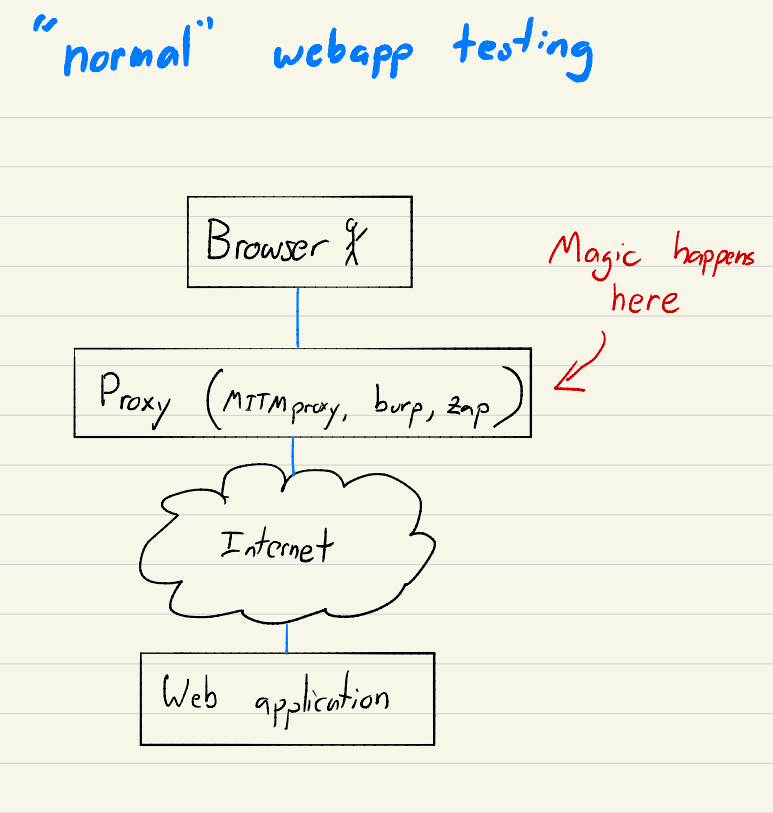 "normal" webapp testing
Browser
Magic happens
here
Proxy (MITMproxy, burp, zap)
Internet
Web application